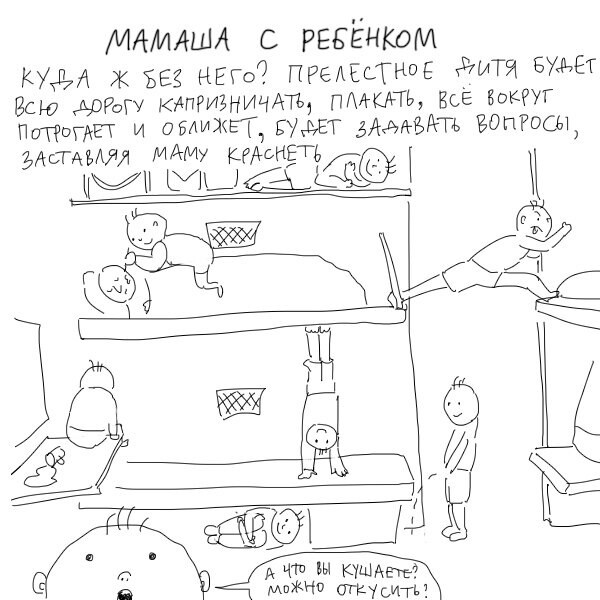 МАМАША С РЕБЁНКОМ
КУДА Ж БЕЗ НЕГО? ПРЕЛЕСТНОЕ ДИТЯ БУДЕТ
ВСЮ ДОРОГУ КАПРИЗНИЧАТЬ, ПЛАКАТЬ, ВСЁ ВОКРУГ
ПОТРОГАЕТ И ОБЛИЖЕТ, БУДЕТ ЗАДАВАТЬ ВОПРОСЫ,
ЗАСТАВЛЯЯ МАМУ КРАСНЕТЬ
А ЧТО ВЫ КУШАЕТЕ?
МОЖНО ОТКУСИТЬ?